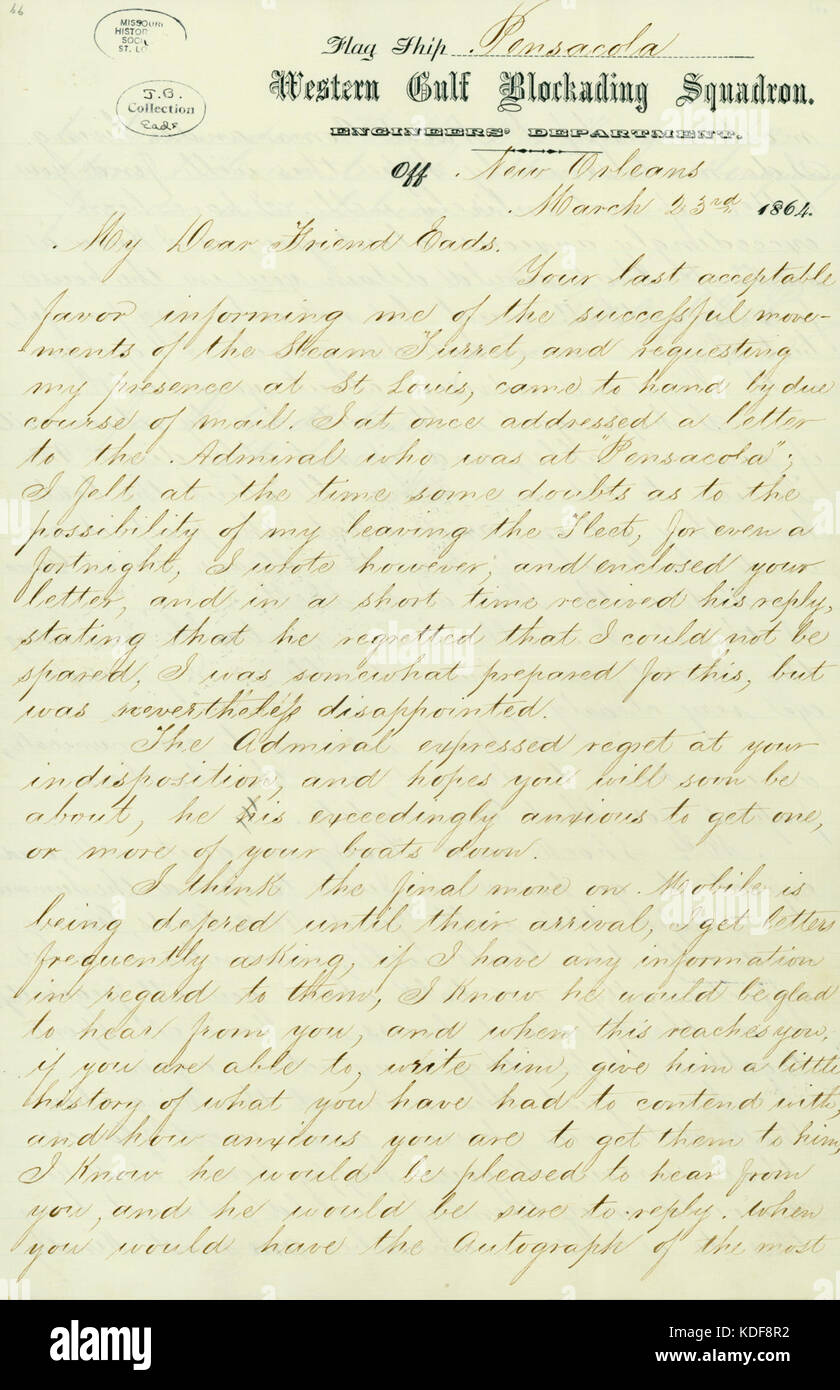 66
MISSOURI
HISTOR
SOCI
ST. LO
J.B.
Collection
Eads
Flag Ship Pensacola
Western Gulf Blockading Squadron.
ENGINEERS' DEPARTMENT.
Off New Orleans
March 23rd 1864.
My Dear Friend Eads.
Your last acceptable
favor informing me of the successful move-
ments of the Steam Turret, and requesting
my presence at St Louis, came to hand by due
course of mail. I at once addressed a letter
to the Admiral who was at "Pensacola";
I felt at the time some doubts as to the
possibility of my leaving the Fleet, for even a
fortnight, I wrote however, and enclosed your
letter, and in a short time received his reply,
stating that he regretted that I could not be
spared, I was somewhat prepared for this, but
was nevertheless disappointed.
The Admiral expressed regret at your
indisposition, and hopes you will soon be
about, he is exceedingly anxious to get one,
or more of your boats down.
I think the final move on Mobile is
being defered until their arrival, I get letters
frequently asking, if I have any information
in regard to them, I Know he would be glad
to hear from you, and when this reaches you,
if you are able to, write him, give him a little
history of what you have had to contend with,
and how anxious you are to get them to him,
I Know he would be pleased to hear from
you, and he would be sure to reply. when
you would have the Autograph of the most
alamy stock photo
KDF8R2
www.alamy.com